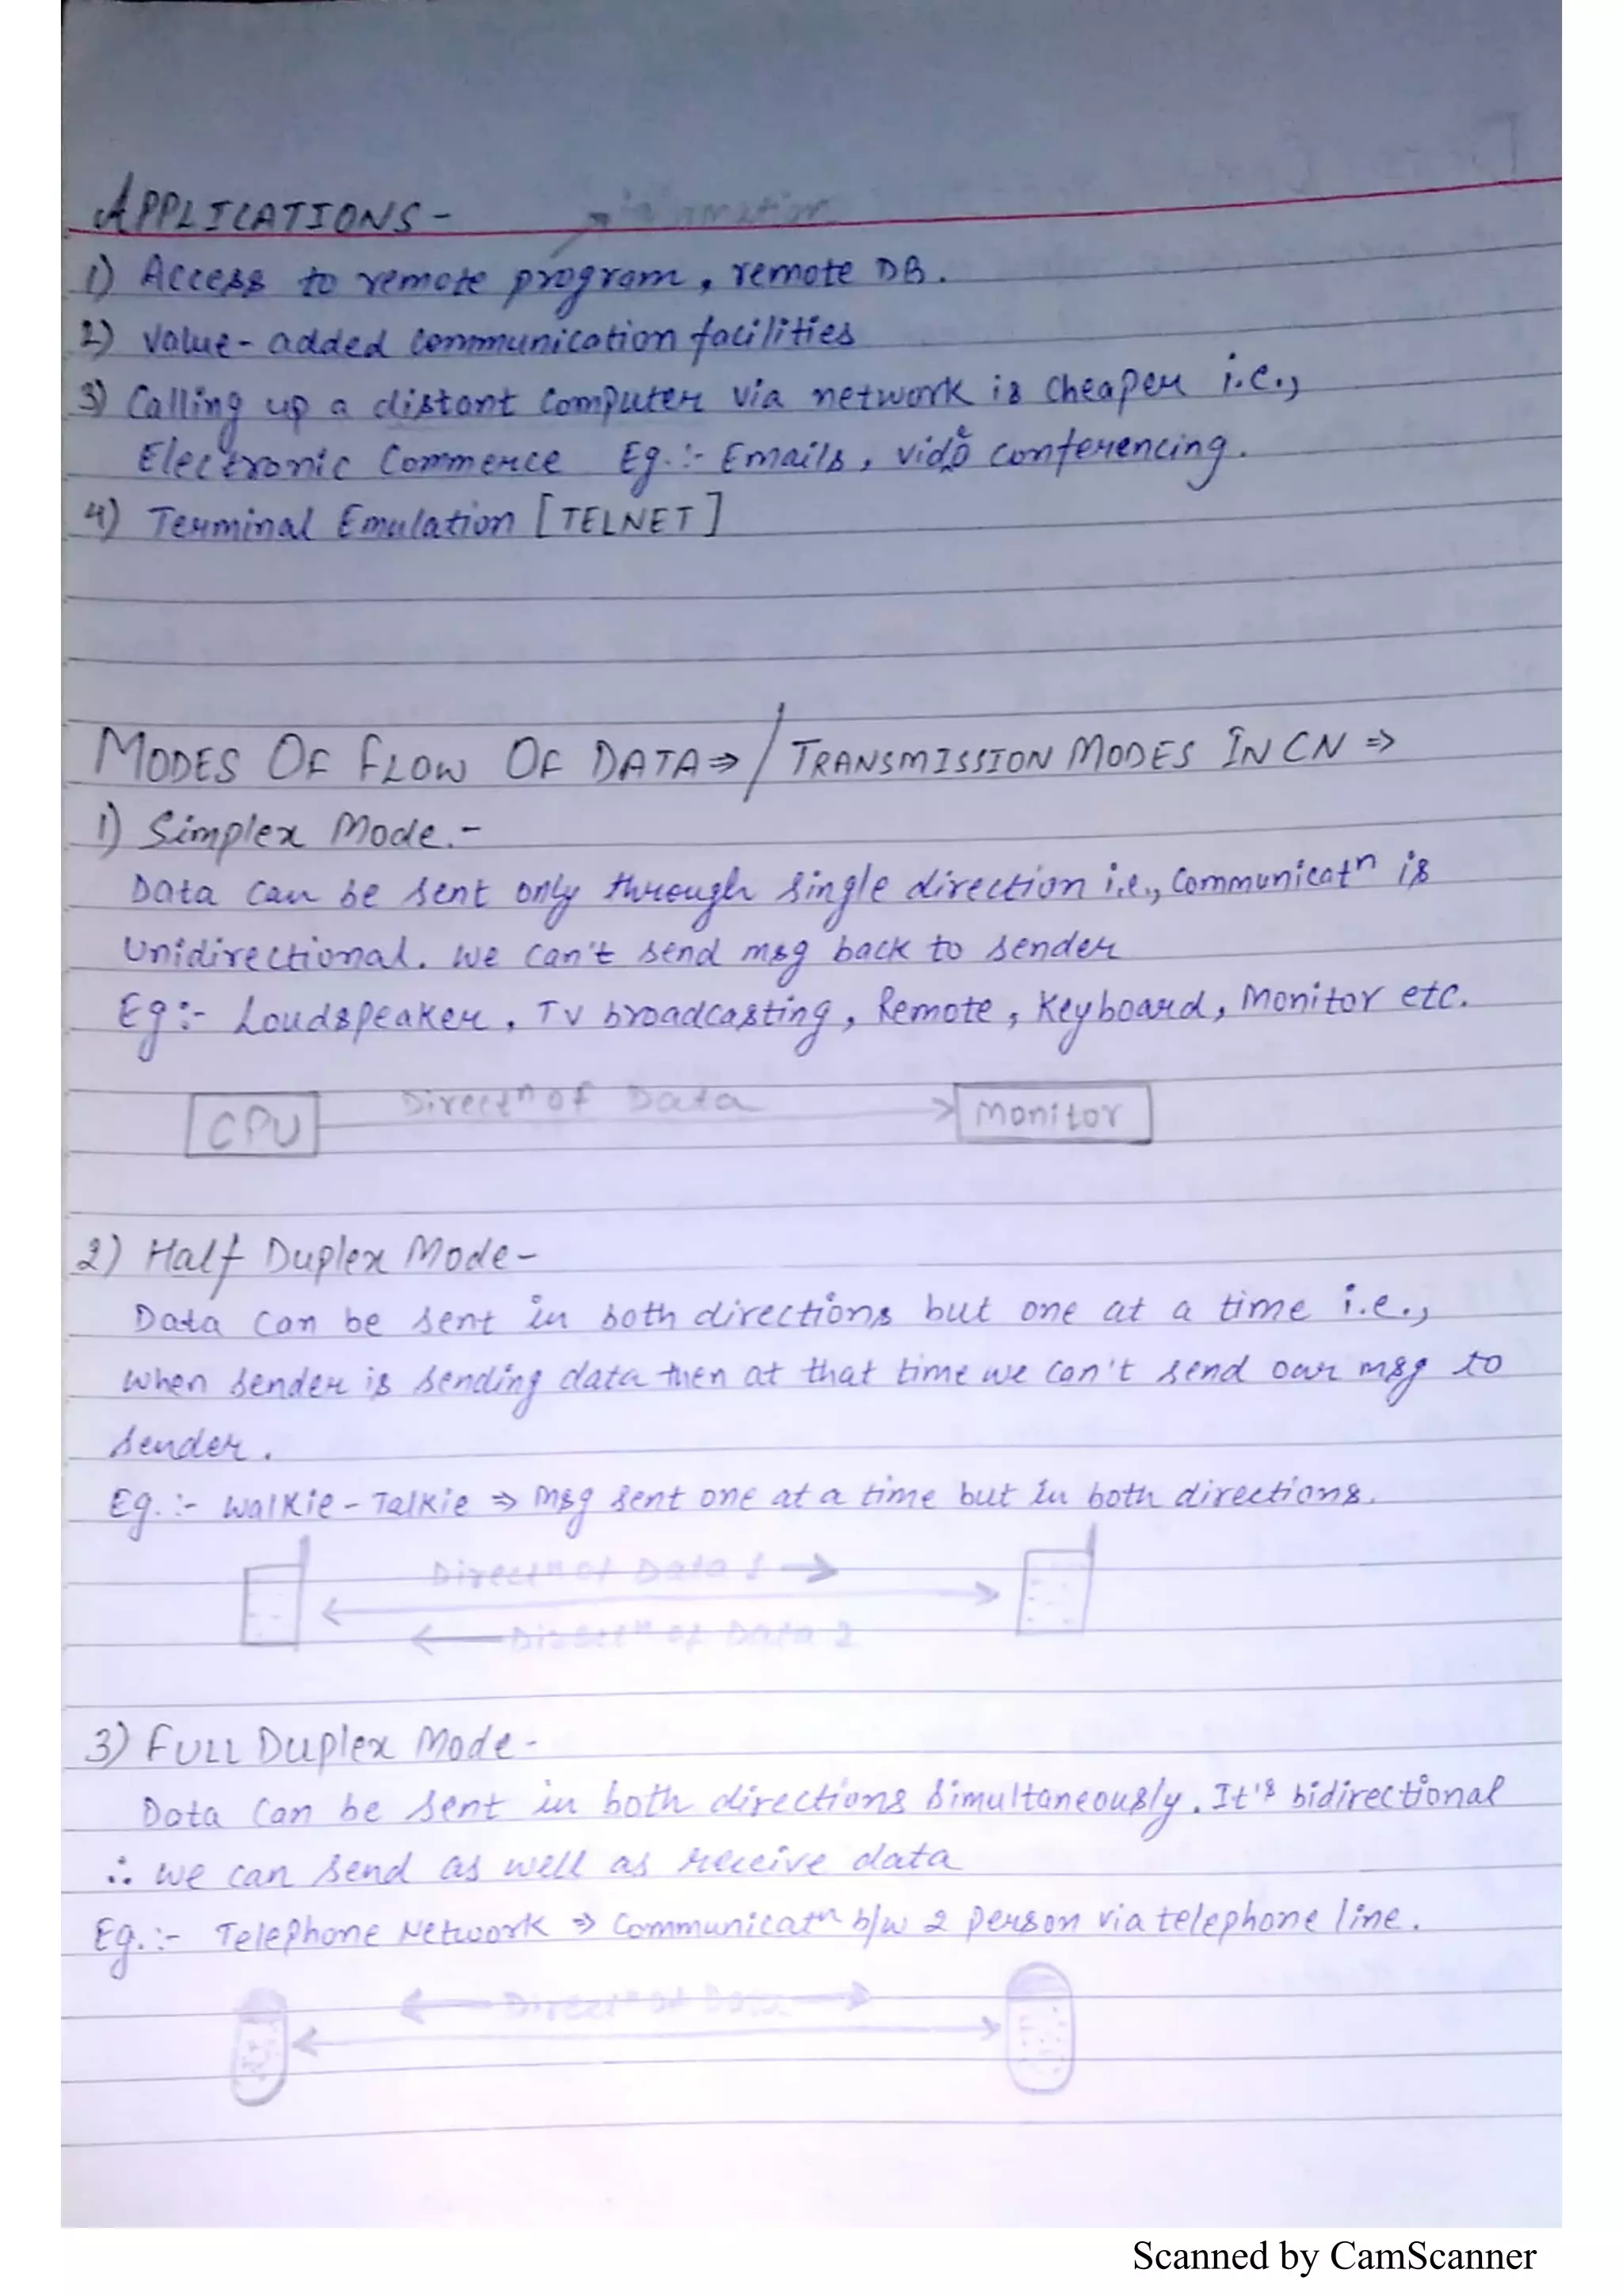 APPLICATIONS-
information
1) Access to remote program, remote DB.
2) Value-added communication facilities
3) Calling up a distant computer via network is cheaper i.e.,
Electronic Commerce Eg.:- Emails, video conferencing.
4) Terminal Emulation [TELNET]
MODES OF FLOW OF DATA⇒/TRANSMISSION MODES IN CN ⇒
1) Simplex Mode.-
Data can be sent only through single direction i.e., Communicatⁿ is
Unidirectional. We can't send msg back to sender
Eg:- Loudspeaker, TV broadcasting, Remote, Keyboard, Monitor etc.
Directⁿ of Data
CPU
Monitor
2) Half Duplex Mode-
Data can be sent in both directions but one at a time i.e.,
when sender is sending data then at that time we can't send our msg to
sender.
Eg.:- Walkie-Talkie ⇒ Msg sent one at a time but in both directions.
Directⁿ of Data 1 →
← Directⁿ of Data 2
3) FULL Duplex Mode-
Data can be sent in both directions simultaneously. It's bidirectional
∴ we can send as well as receive data
Eg.:- Telephone Network ⇒ Communicatⁿ b/w 2 person via telephone line.
← Directⁿ of Data →
Scanned by CamScanner